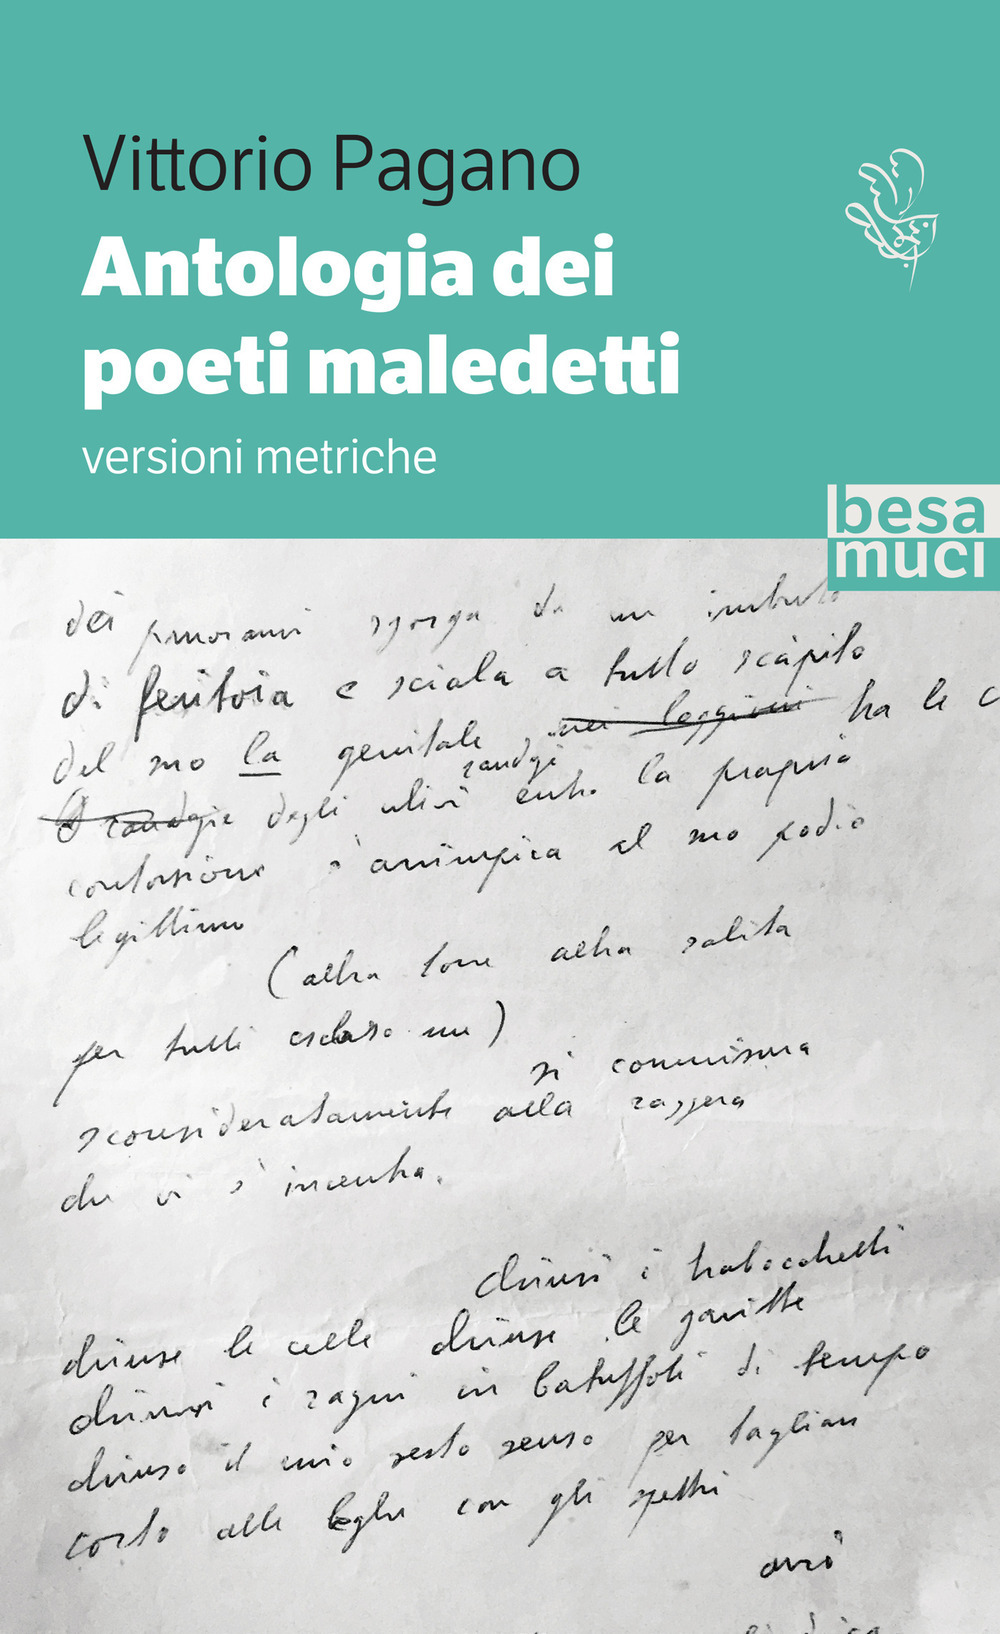 Vittorio Pagano
Antologia dei
poeti maledetti
versioni metriche
besa
muci
dei panorami sgorga da un imbuto
di feritoia e sciala a tutto scàpito
del suo la genitale, nei loggioni ha le c
randagi
O randagie degli ulivi entro la propria
contorsione s'arrampica al suo podio
legittimo
(altra torre altra salita
per tutti escluso me)
si commisura
sconsideratamente alla raggera
che vi s'incentra.
chiusi i trabocchetti
chiuse le celle chiuse le garitte
chiusi i ragni in batuffoli di tempo
chiuso il mio sesto senso per tagliare
corto alle leghe con gli spettri